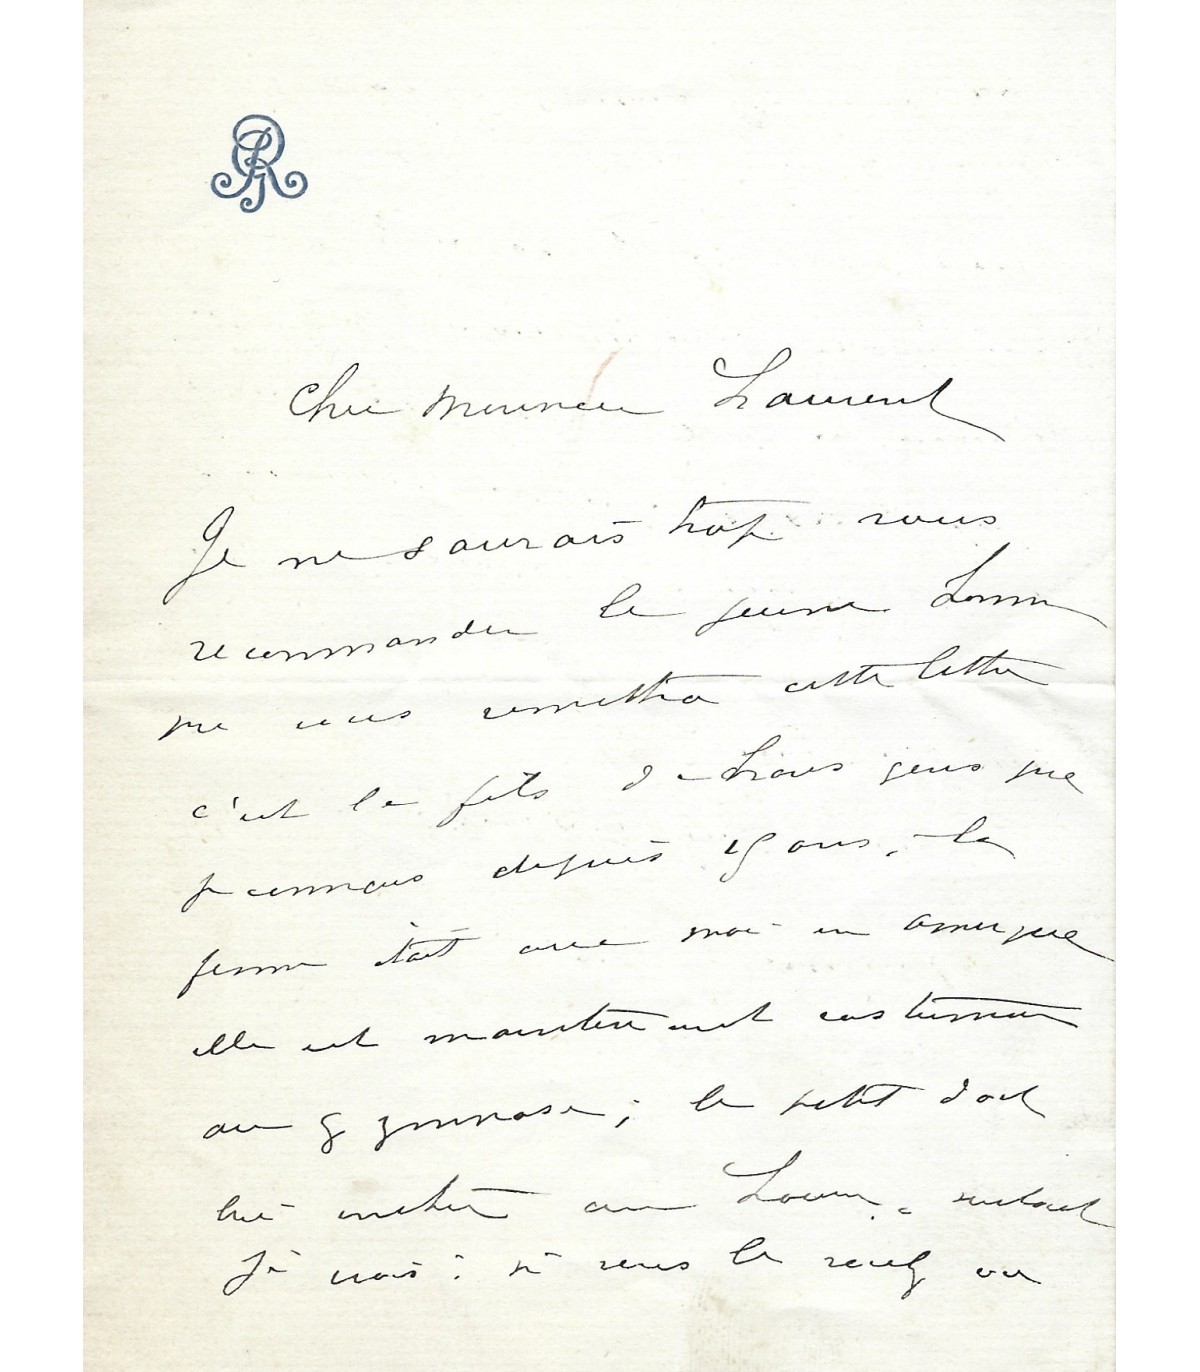 Cher Monsieur Laurent
Je ne saurais trop vous
recommander le jeune
que vous remettra cette lettre
c'est le fils de braves gens que
je connais depuis 15 ans, la
femme était avec moi en amerique
elle est maintenant costumière
au gymnase; le petit doit
entrer au Louvre
je crois; si vous le voulez